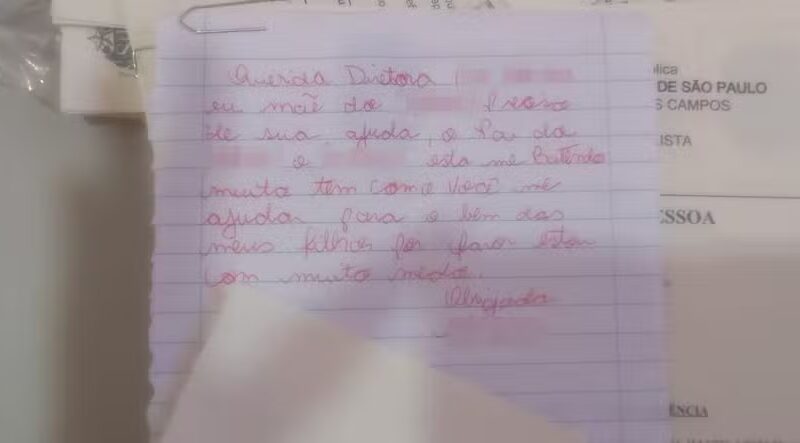 Querida Diretora
eu mãe do Preciso
de sua ajuda, o Pai da
e esta me Batendo
muito tem como você me
ajudar para o bem dos
meus filhos por favor estou
com muito medo.
Obrigada
blica
DE SÃO PAULO
S CAMPOS
ISTA
ESSOA
ÊNCIA